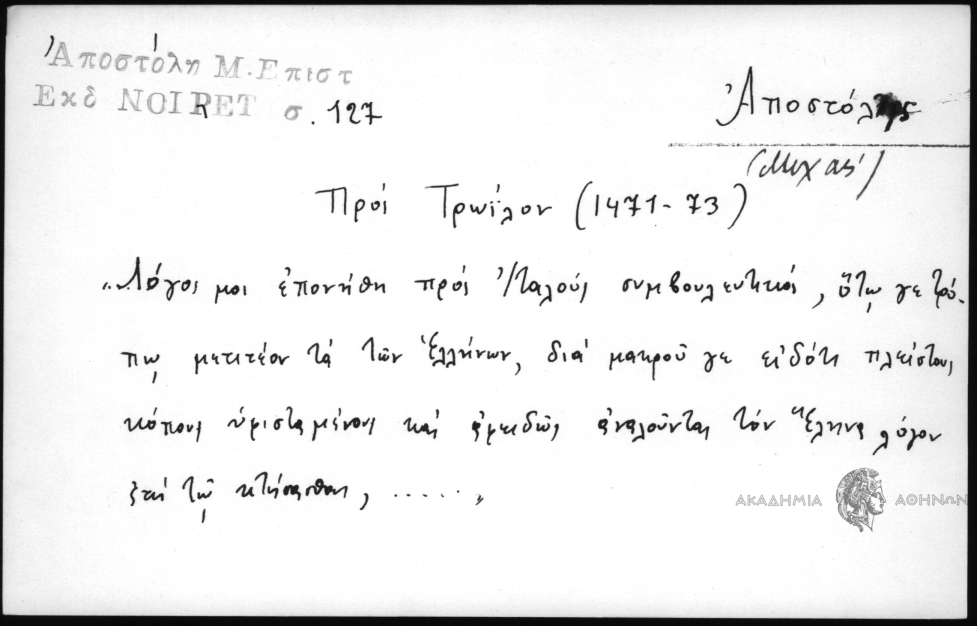 Ἀποστόλη Μ. Επιστ
Εκδ NOIRET σ. 127
Ἀποστόλης
(Μιχαήλ)
Πρός Τρωΐλον (1471-73)
"Λόγος μοι ἐπονήθη πρός Ἰταλούς συμβουλευτικός, ὅτῳ γε τρό-
πῳ μετιτέον τά τῶν Ἑλλήνων, διά μακροῦ γε εἰδότι πλείστους
κόπους ὑφισταμένους καί ἀφειδῶς ἀναλοῦντας τόν Ἕλληνα λόγον
ἐπί τῷ κτήσασθαι, ......"
ΑΚΑΔΗΜΙΑ ΑΘΗΝΩΝ